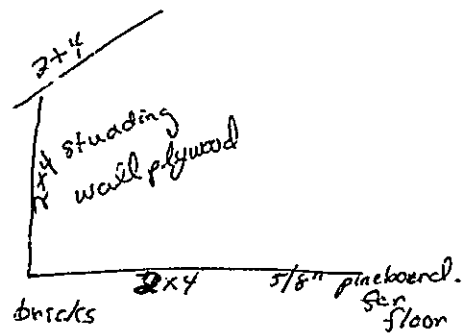 2x4
2x4 studding
wall plywood
2x4
5/8" pineboard.
for
floor
bricks